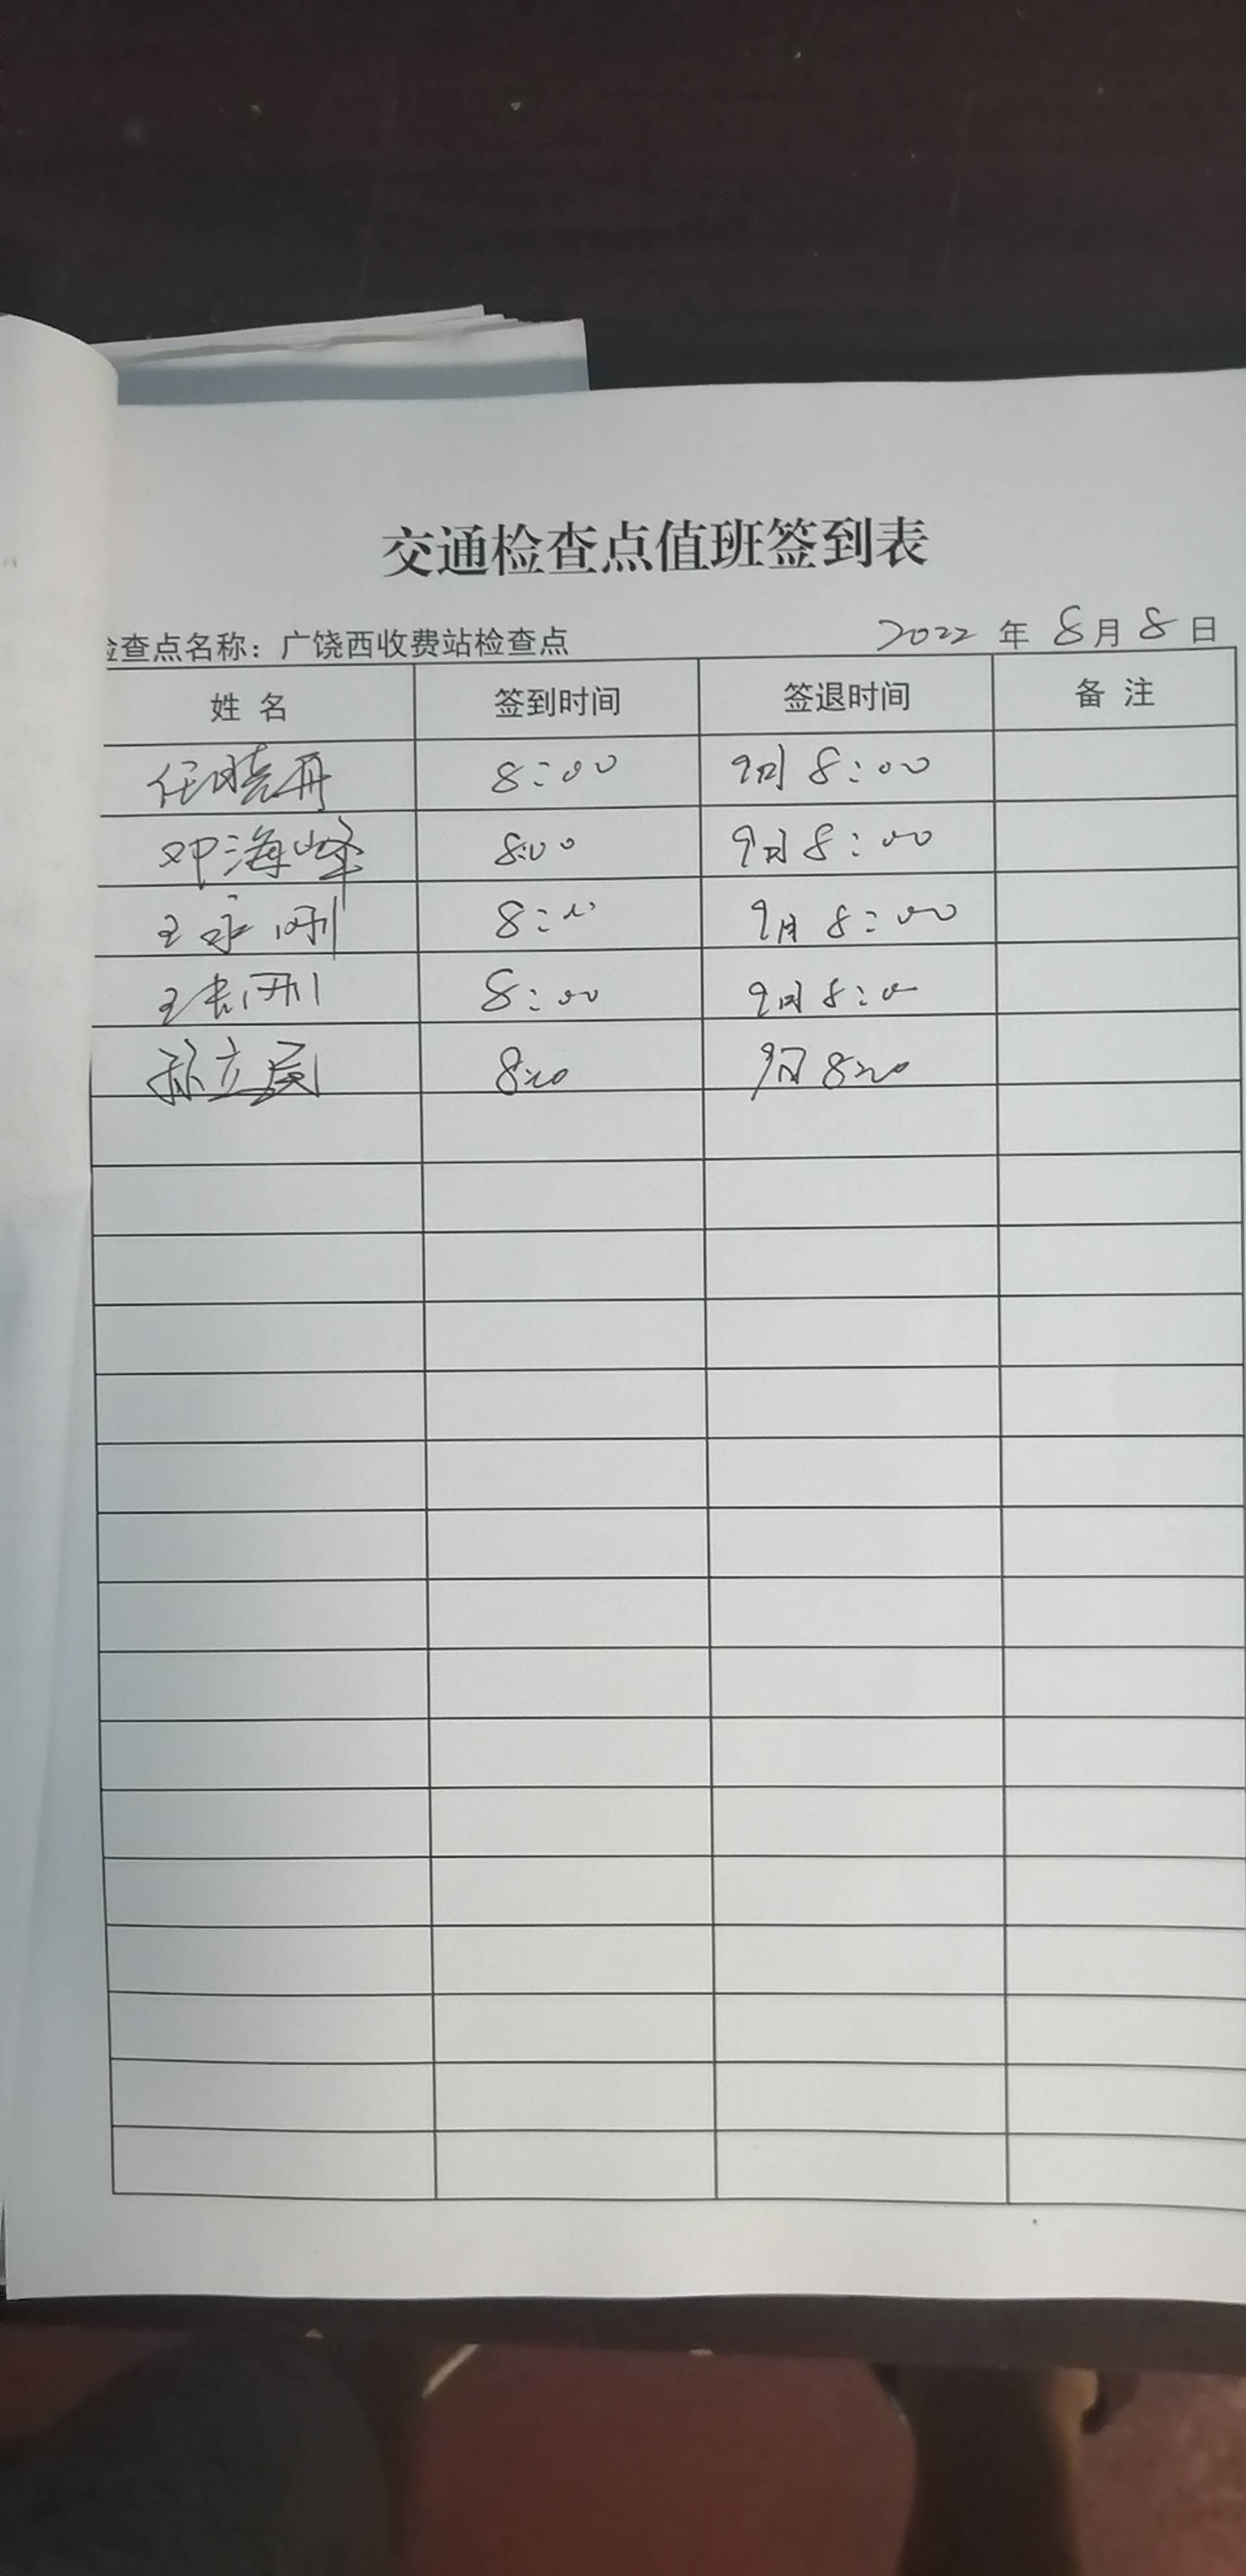 交通检查点值班签到表
检查点名称：广饶西收费站检查点 2022 年 8 月 8 日
姓 名 签到时间 签退时间 备 注
任晓冉 8:00 9日 8:00
邓海峰 8:00 9日 8:00
王永刚 8:00 9日 8:00
王志刚 8:00 9日 8:00
孙立 8:00 9日 8:00